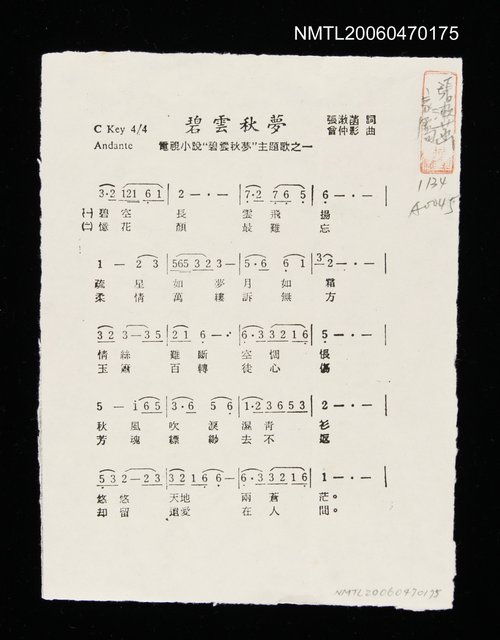 NMTL20060470175
碧雲秋夢
C Key 4/4
張漱菡 詞
曾仲影 曲
Andante 電視小說"碧雲秋夢"主題歌之一
1134
A0045
3·2 121 6 1 | 2 — · — · | 7·2 7 6 5 | 6 — · — ·
㈠碧空長雲飛揚
㈡憶花顏最難忘
1 — 2 3 | 565 3 2 3 — | 5·6 6 1 | 3 2 — · — ·
疏星如夢月如霜
柔情萬縷訴無方
3 2 3 — 3 5 | 2 1 6 — · | 6·3 3 2 1 6 | 5 — · — ·
情絲難斷空惆悵
玉簫百轉徒心傷
5 — i 6 5 | 3·6 5 6 | 1·2 3 6 5 3 | 2 — · — ·
秋風吹淚濕青衫
芳魂縹緲去不返
5 3 2 — 2 3 | 3 2 1 6 — · | 6·3 3 2 1 6 | 1 — · — ·
悠悠天地兩蒼茫。
却留遺愛在人間。
NMTL20060470175